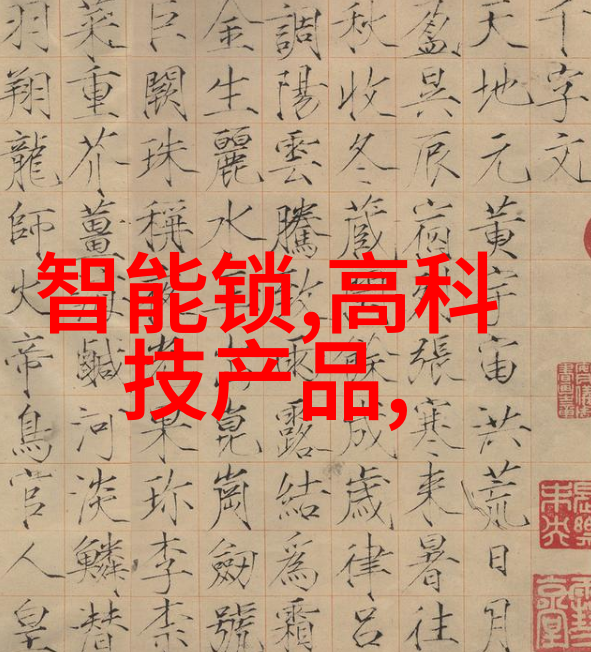 智能锁,高科
技产品,
千字文
天地元黃宇宙洪荒日月
盈昃辰宿列張寒来暑往
秋收冬蔵閏餘成歲律吕
調陽雲騰致雨露結為霜
金生麗水玉出崑崗劒號
巨闕珠稱夜光果珍李柰
菜重芥薑海鹹河淡鱗潛
羽翔龍師火帝鳥官人皇